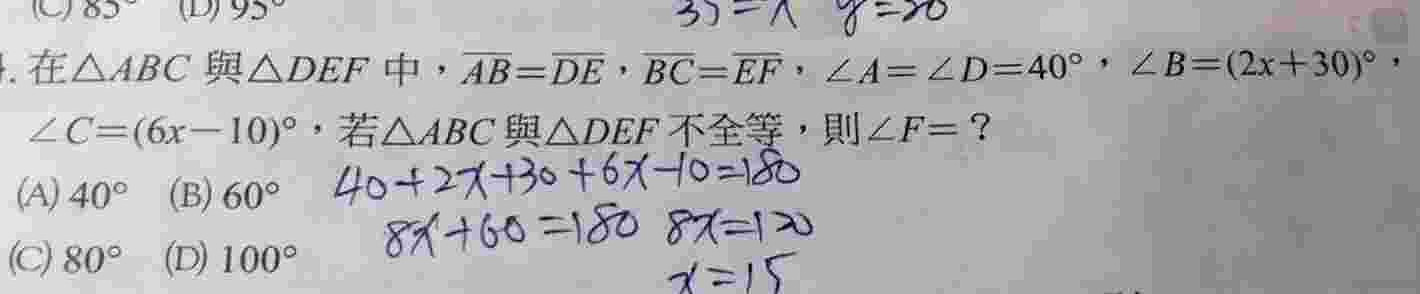 (C) 85° (D) 95°
35=x y=20
. 在△ABC 與△DEF 中，AB=DE，BC=EF，∠A=∠D=40°，∠B=(2x+30)°，
∠C=(6x－10)°，若△ABC 與△DEF 不全等，則∠F=？
(A) 40° (B) 60° 40+2x+30+6x-10=180
8x+60=180 8x=120
(C) 80° (D) 100°
x=15